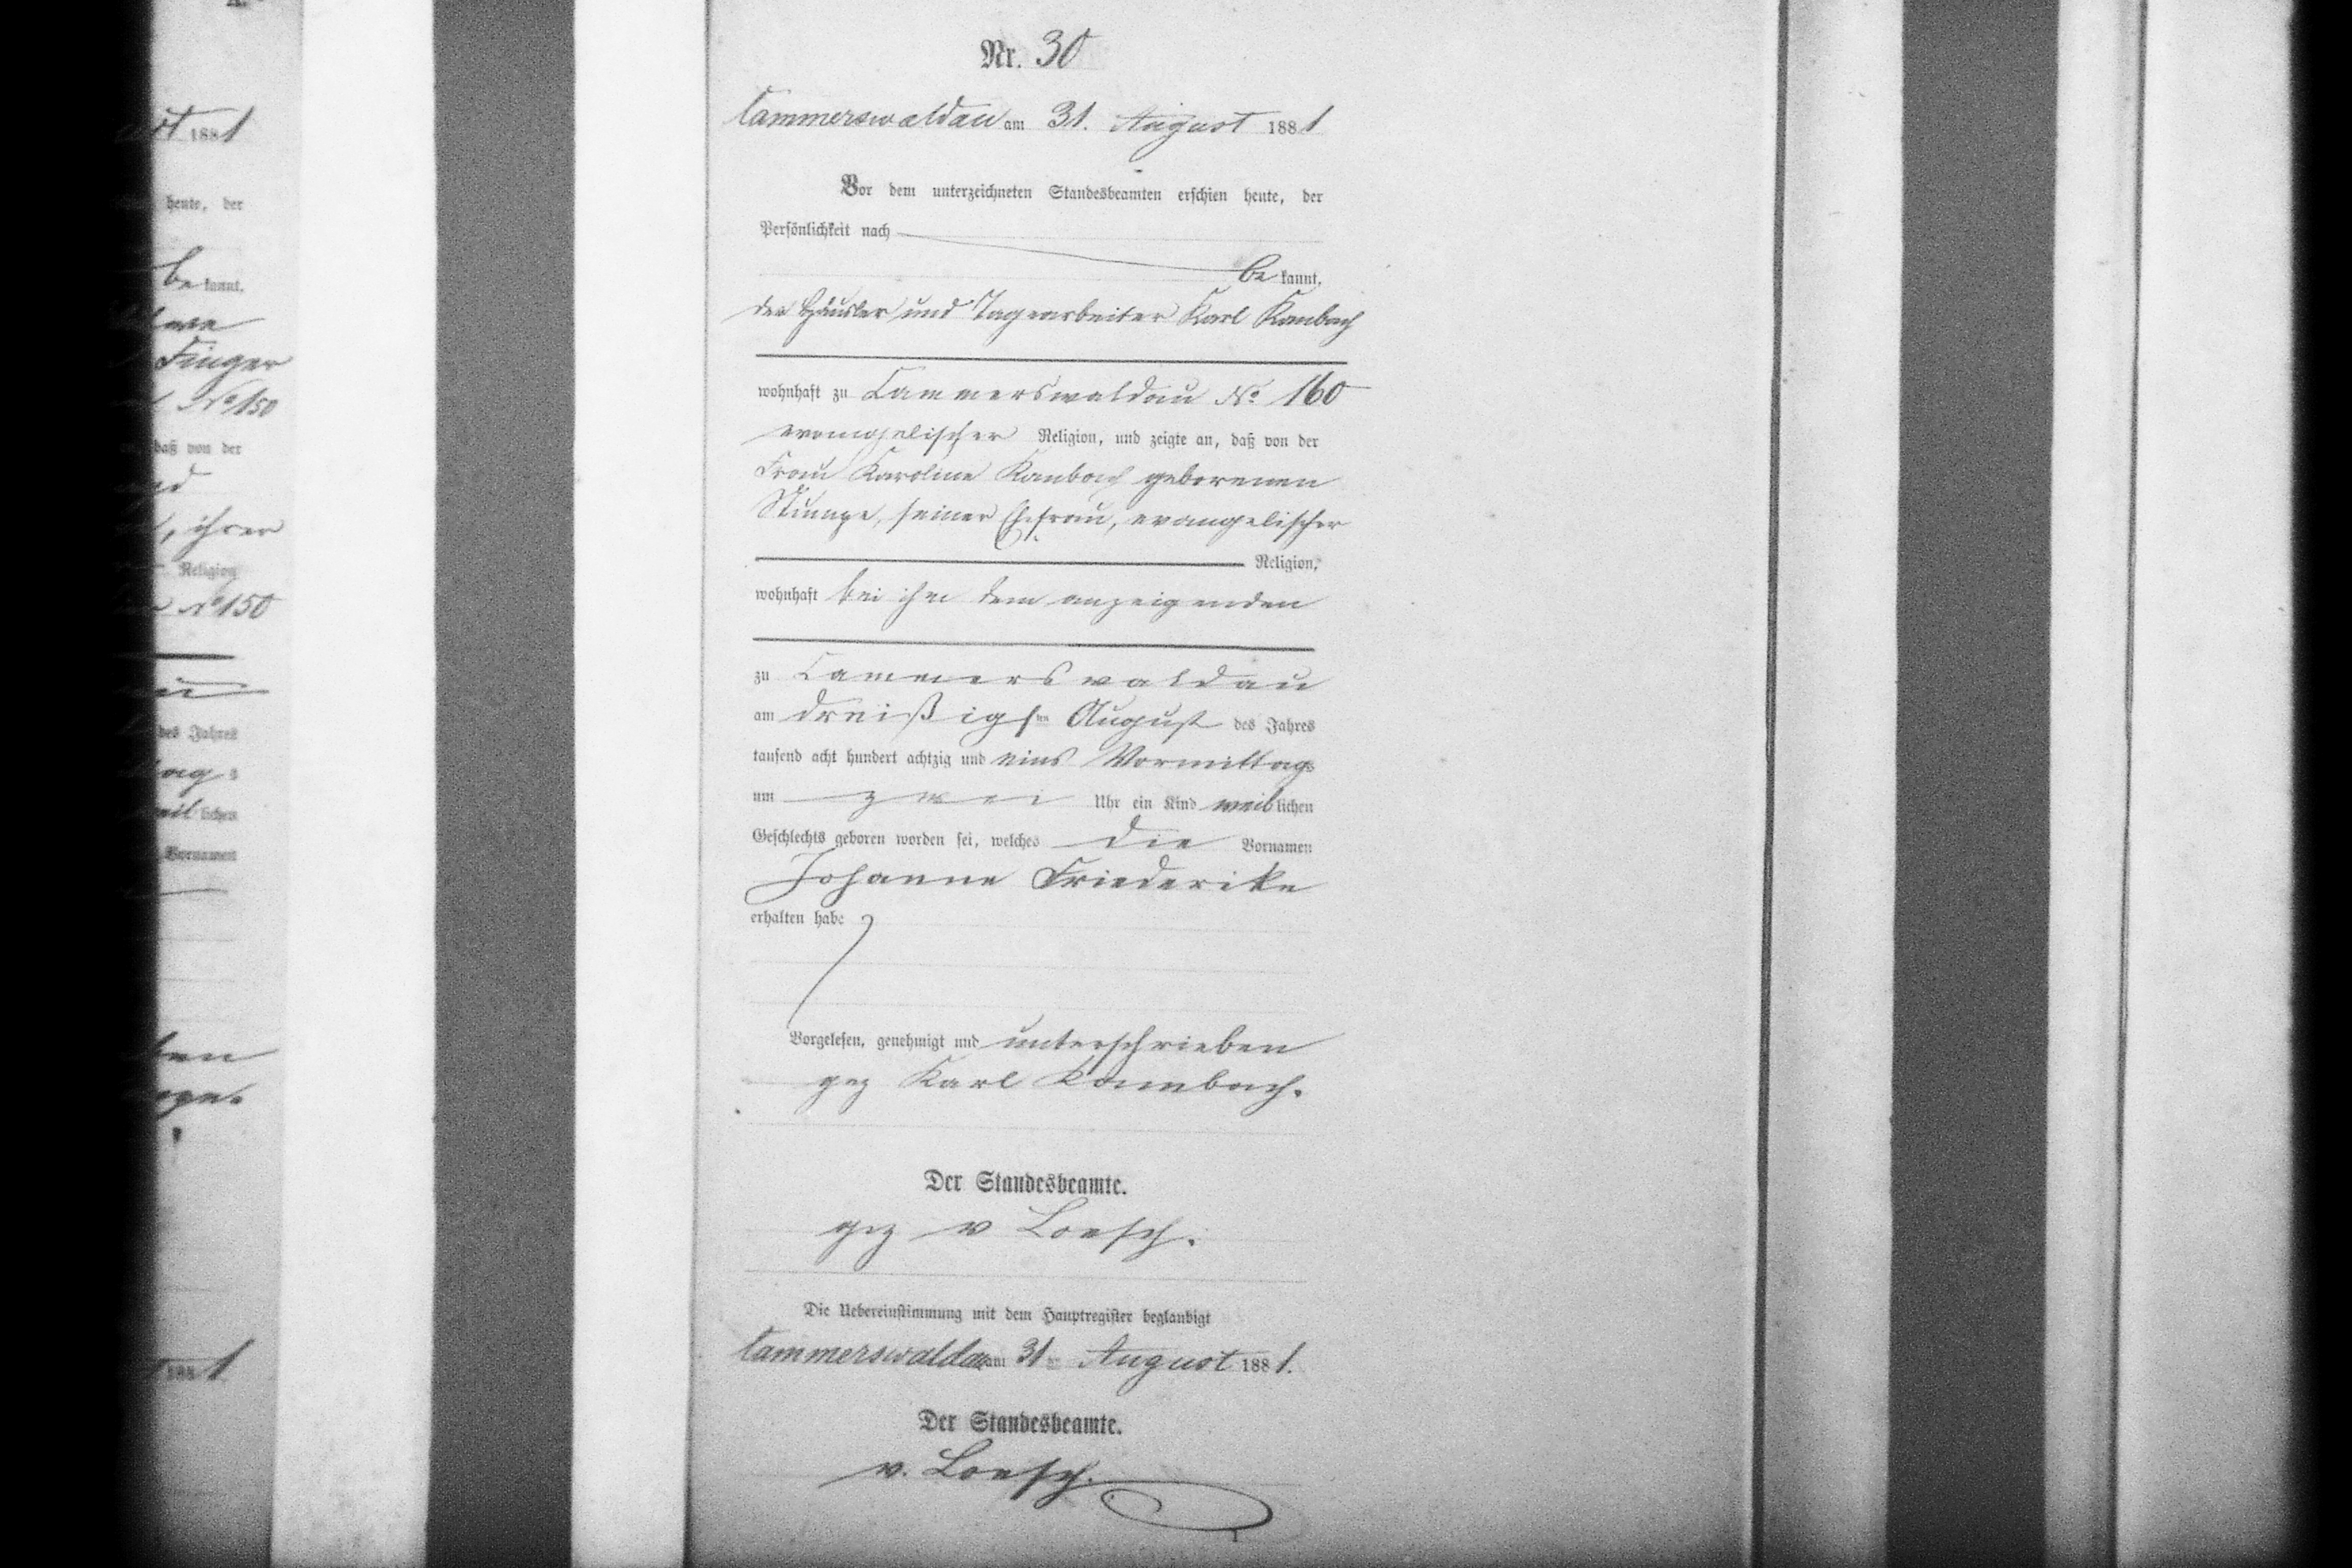 Nr. 30
Cammerswaldau am 31. August 1881
Vor dem unterzeichneten Standesbeamten erschien heute, der
Persönlichkeit nach
bekannt,
der Häusler und Tagearbeiter Karl Kambach
wohnhaft zu Cammerswaldau No 160
evangelischer Religion, und zeigte an, daß von der
Frau Karoline Kambach geborenen
Stumpe, seiner Ehefrau, evangelischer
Religion,
wohnhaft bei ihm dem anzeigenden
zu Cammerswaldau
am dreißigsten August des Jahres
tausend acht hundert achtzig und eins Vormittags
um zwei Uhr ein Kind weiblichen
Geschlechts geboren worden sei, welches die Vornamen
Johanne Friederike
erhalten habe
Vorgelesen, genehmigt und unterschrieben
gez Karl Kambach.
Der Standesbeamte.
gez v Loesch.
Die Uebereinstimmung mit dem Hauptregister beglaubigt
Cammerswaldau am 31ten August 1881.
Der Standesbeamte.
v. Loesch.
1881
heute, der
bekannt,
Finger
No 150
daß von der
ihrer
Religion
No 150
des Jahres
lichen
Vornamen
1881